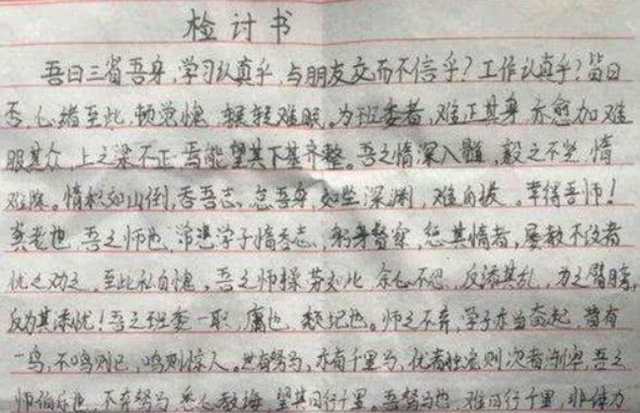 检讨书
吾日三省吾身,学习认真乎,与朋友交而不信乎?工作认真乎?皆曰
否,心绪至此,顿觉愧,辗转难眠。为班委者,难正其身,亦愈加难
服其众,上之梁不正,焉能望其下其齐整。吾之惰深入髓,毅之不坚,惰
难除。惰积如山倒,吞吾志、怠吾身,如坐深渊,难自拔。幸得吾师!
龚老也,吾之师也,常悲学子惰吞志,躬身督察,惩其惰者,屡教不改者
忧之劝之。至此私自愧,吾之师操劳如此,余心不忍,反添其乱,为之臂膀,
反为其添忧!吾之班委一职,庸也,赖圮也。师之不弃,学子亦当奋起,昔有
一鸟,不鸣则已,鸣则惊人。世有驽马,亦有千里马,优者独宠则次者渐甲,吾之
师伯乐也,不弃驽马,悉心教诲,望其日行千里。吾驽马也,难日行千里,非体力